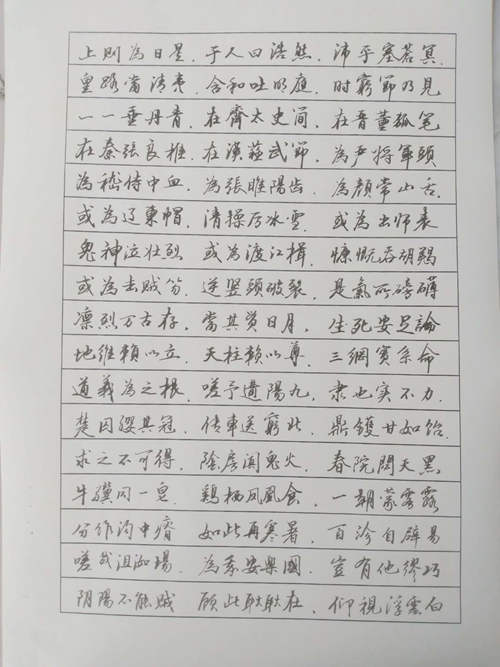 上则為日星．于人曰浩然．沛乎塞苍冥．
皇路當清夷．含和吐明庭．时窮節乃見
一一垂丹青．在齊太史简．在晋董狐笔
在秦張良椎．在漢蘇武節．為严将軍頭
為嵇侍中血．為張睢陽齿．為顏常山舌
或為辽東帽．清操厉冰雪．或為出师表
鬼神泣壮烈 或為渡江楫．慷慨吞胡羯
或為击贼笏．逆豎頭破裂．是氣所磅礴
凛烈万古存．當其贯日月．生死安足論
地维賴以立．天柱賴以尊．三綱实系命
道義為之根．嗟予遘陽九．隶也实不力．
楚囚缨其冠．传車送窮北．鼎鑊甘如饴．
求之不可得．陰房阒鬼火．春院閟天黑
牛驥同一皂．鷄栖凤凰食．一朝蒙雾露
分作沟中瘠 如此再寒暑．百沴自辟易
嗟哉沮洳場．為我安樂國．豈有他缪巧
阴陽不能贼 顾此耿耿在．仰視浮雲白